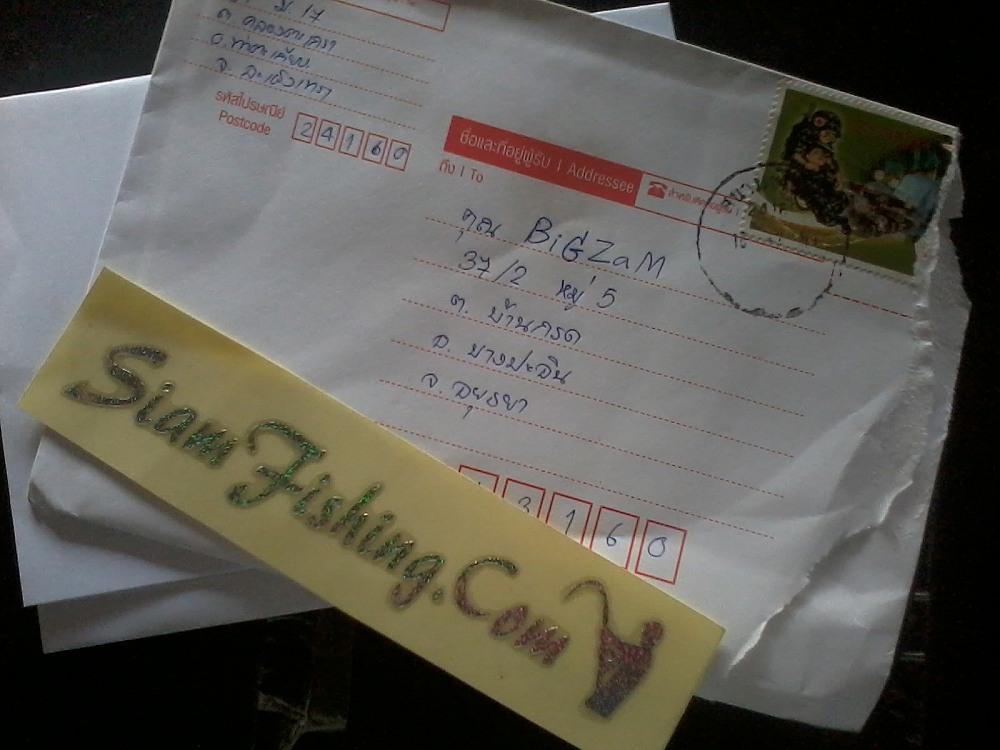 ม. 17
ต. คลองตะเกรา
อ. ท่าตะเกียบ
จ. ฉะเชิงเทรา
รหัสไปรษณีย์
Postcode 24160
ชื่อและที่อยู่ผู้รับ | Addressee
ถึง | To
คุณ BiGZaM
37/2 หมู่ 5
ต. บ้านกรด
อ. บางปะอิน
จ. อยุธยา
3160
SiamFishing.Com